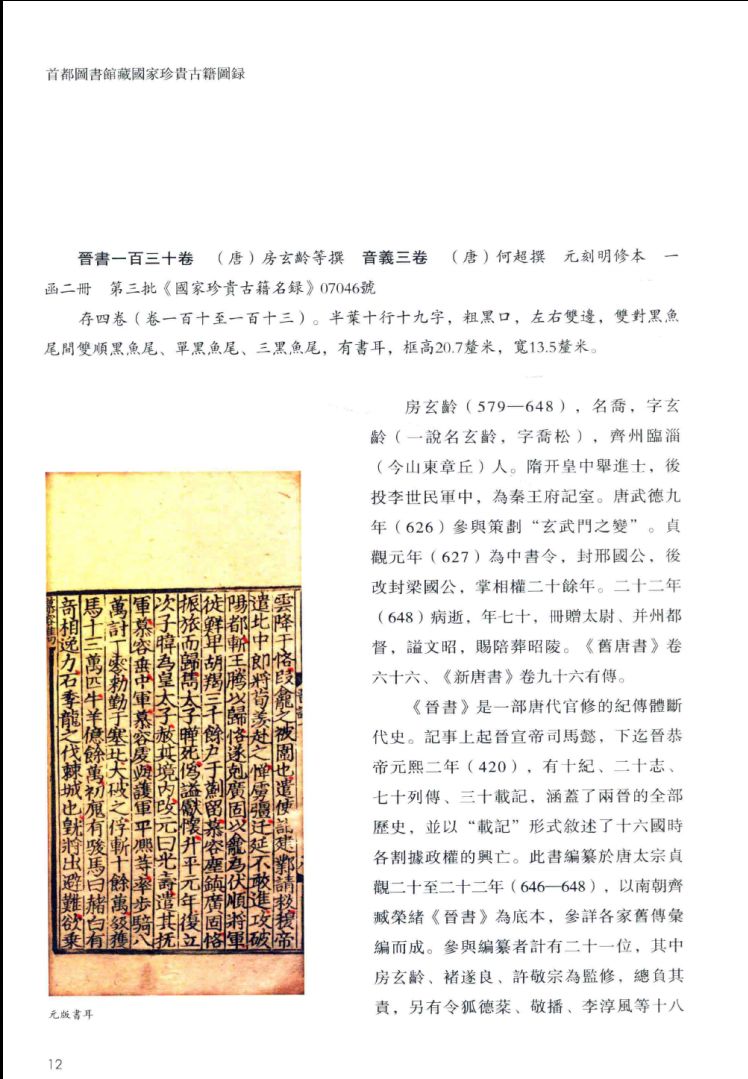 首都圖書館藏國家珍貴古籍圖録
晉書一百三十卷　（唐）房玄齡等撰　音義三卷　（唐）何超撰　元刻明修本　一
函二冊　第三批《國家珍貴古籍名録》07046號
存四卷（卷一百十至一百十三）。半葉十行十九字，粗黑口，左右雙邊，雙對黑魚
尾間雙順黑魚尾、單黑魚尾、三黑魚尾，有書耳，框高20.7釐米，寬13.5釐米。
房玄齡（579—648），名喬，字玄
齡（一說名玄齡，字喬松），齊州臨淄
（今山東章丘）人。隋开皇中舉進士，後
投李世民軍中，為秦王府記室。唐武德九
年（626）參與策劃“玄武門之變”。貞
觀元年（627）為中書令，封邢國公，後
改封梁國公，掌相權二十餘年。二十二年
（648）病逝，年七十，冊贈太尉、并州都
督，謚文昭，賜陪葬昭陵。《舊唐書》卷
六十六、《新唐書》卷九十六有傳。
《晉書》是一部唐代官修的紀傳體斷
代史。記事上起晉宣帝司馬懿，下迄晉恭
帝元熙二年（420），有十紀、二十志、
七十列傳、三十載記，涵蓋了兩晉的全部
歷史，並以“載記”形式敘述了十六國時
各割據政權的興亡。此書編纂於唐太宗貞
觀二十至二十二年（646—648），以南朝齊
臧榮緒《晉書》為底本，參詳各家舊傳彙
編而成。參與編纂者計有二十一位，其中
房玄齡、褚遂良、許敬宗為監修，總負其
責，另有令狐德棻、敬播、李淳風等十八
雲降于恪段龕之被圍也遣使詣建鄴請救穆帝
遣北中郎將荀羨赴之憚虜彊迁延不敢進攻破
陽都斬王騰以歸恪遂剋廣固以龕為伏順將軍
徙鮮卑胡羯三千餘戶于薊留慕容塵鎮廣固恪
振旅而歸雋太子曄死偽謚獻懷升平元年復立
次子暐為皇太子赦其境内改元曰光壽遣其抚
軍慕容垂中軍慕容虔與護軍平熙等率步騎八
萬討丁零勑勒于塞北大破之俘斬十餘萬級獲
馬十三萬匹牛羊億餘萬初廆有駿馬曰赭白有
奇相逸力石季龍之伐棘城也皝將出避難欲乘
慕容雋
元版書耳
12